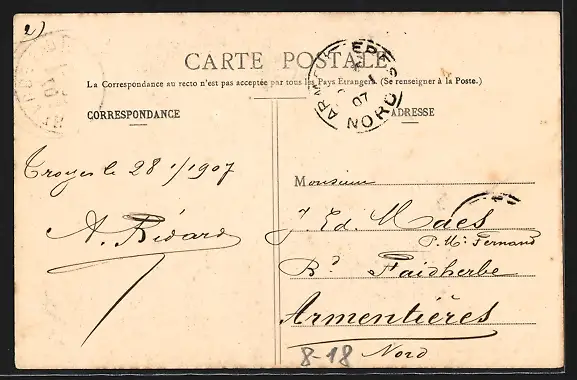 2)
CARTE POSTALE
La Correspondance au recto n'est pas acceptée par tous les Pays Etrangers. (Se renseigner à la Poste.)
CORRESPONDANCE
Troyes le 28 1/1907
A. Bévard
ADRESSE
07
NORD
Monsieur
J. Ed. Maes
P. Mc Fernand
Bd Faidherbe
Armentières
Nord
8-18